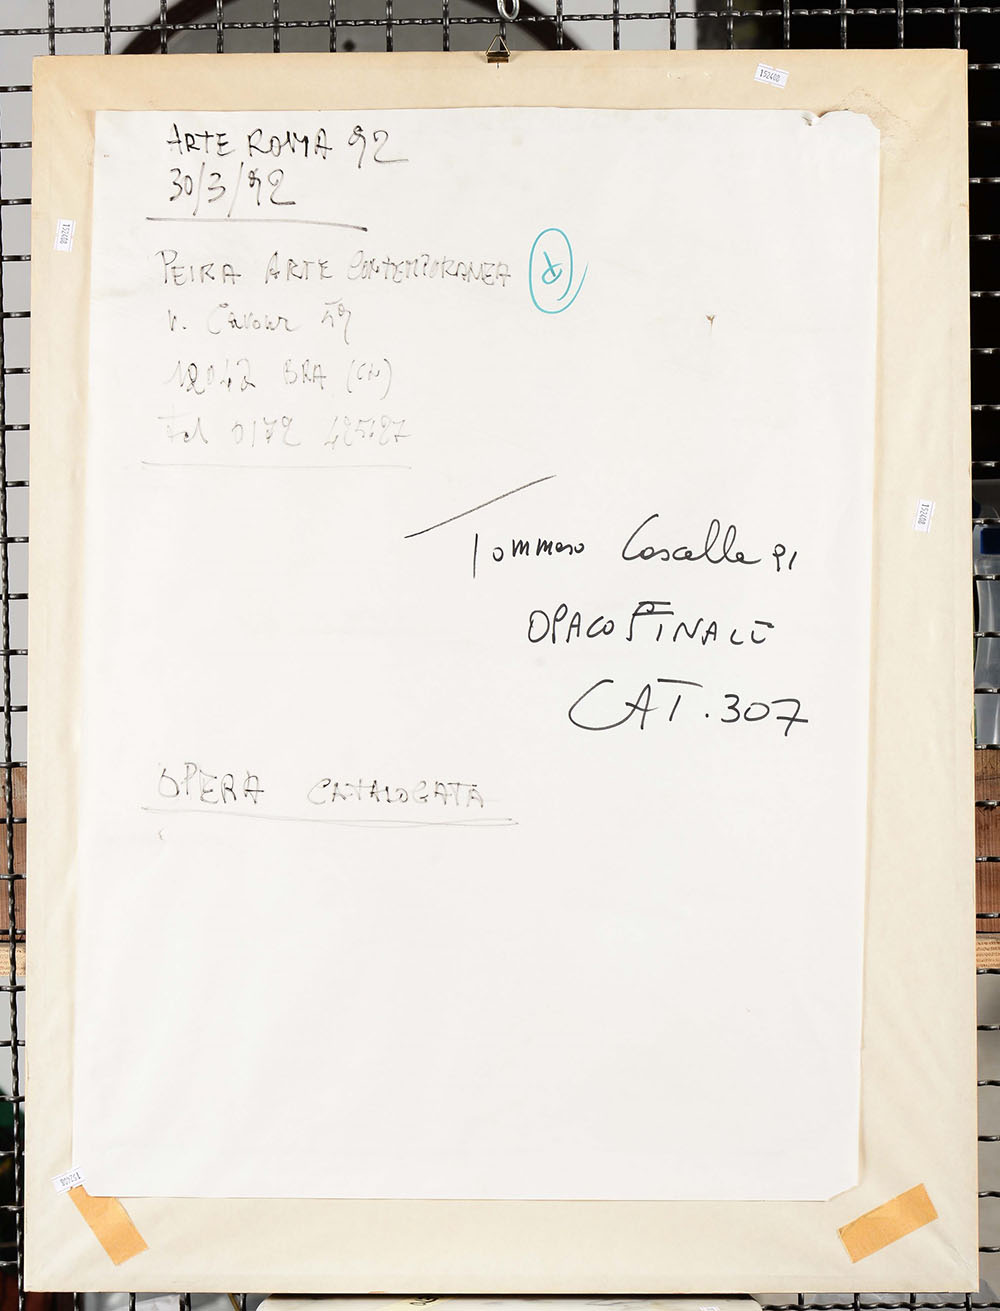 152408
ARTE ROMA 92
30/3/92
152408
PEIRA ARTE CONTEMPORANEA
v. Cavour 49
12042 BRA (CN)
Tel 0172
152408
Tommaso Cascella 91
OPACO FINALE
CAT. 307
OPERA CATALOGATA
152408